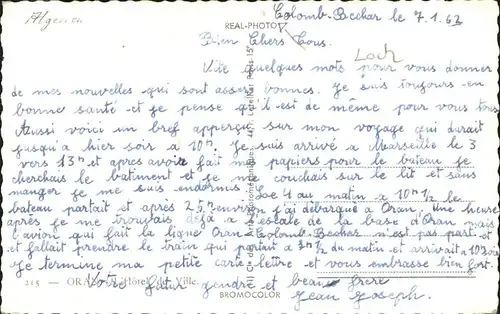 Algerien
REAL-PHOTO
Colomb-Bechar le 7.1.62
Bien Chers Tous.
Loch
Vite quelques mots pour vous donner
de mes nouvelles qui sont assez bonnes. Je suis toujours en
bonne santé et je pense qu'il est de même pour vous tous
Aussi voici un bref apperçu sur mon voyage qui durait
jusqu'a hier soir a 10h. Je suis arrivé a Marseille le 3
vers 13h et apres avoir fait mes papiers pour le bateau je
cherchais le batiment et je me couchais sur le lit et sans
manger je me suis endormis. Le 4 au matin a 10h 1/2 le
bateau partait et après 25h environ j'ai débarqué a Oran. Une heure
après je me trouvais déjà a l'escale de la base d'Oran mais
l'avion qui fait la ligne Oran-Colomb-Bechar n'est pas parti
et fallait prendre le train qui partait a 5h 1/2 du matin et arrivait a 10h soir
Je termine ma petite carte-lettre et vous embrasse bien fort.
Votre futur gendre et beau frère
215 - ORAN - Hôtel de Ville.
BROMOCOLOR
Jean Joseph.